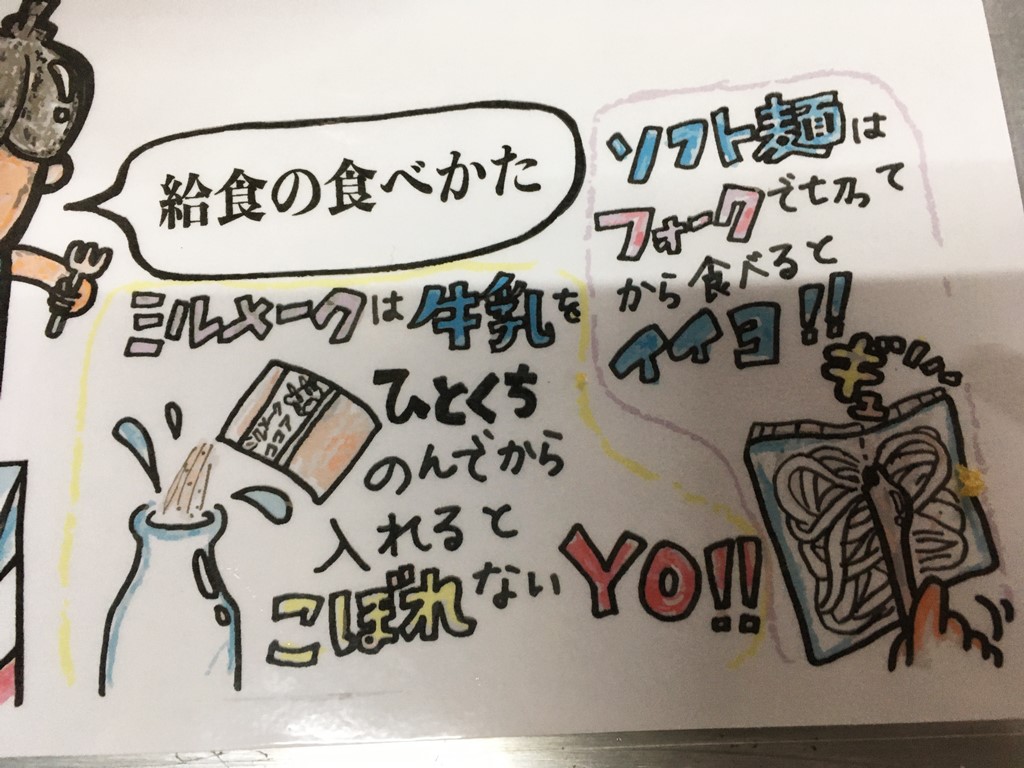 給食の食べかた
ソフト麺は
フォークで切って
から食べると
イイヨ!!
ギュー
ミルメークは牛乳を
ひとくち
のんでから
入れると
こぼれない
YO!!